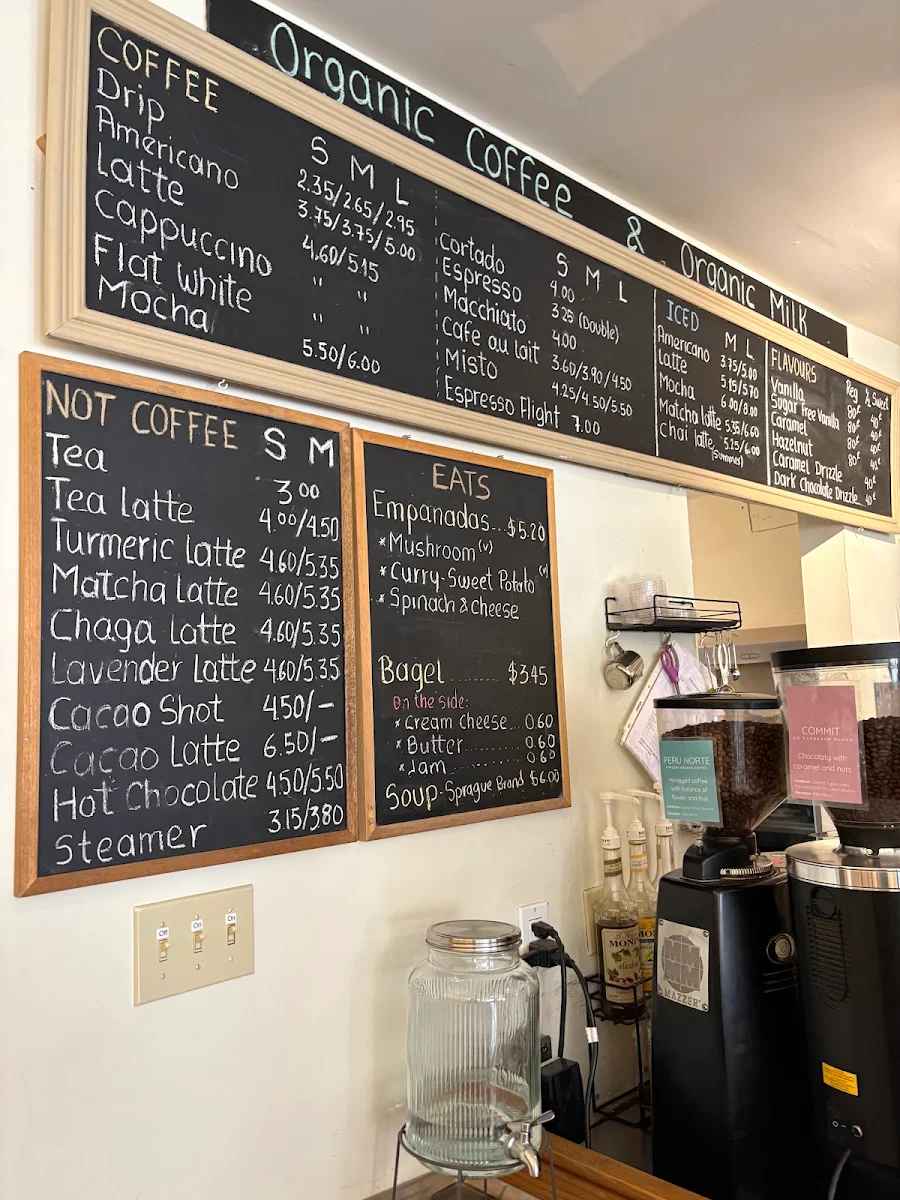 Organic Coffee & Organic Milk
COFFEE
S M L
Drip 2.35/2.65/2.95
Americano 3.75/3.75/5.00
Latte 4.60/5.15
Cappuccino " "
Flat White " "
Mocha 5.50/6.00
S M L
Cortado 4.00
Espresso 3.25 (Double)
Macchiato 4.00
Cafe au lait 3.60/3.90/4.50
Misto 4.25/4.50/5.50
Espresso Flight 7.00
ICED
M L
Americano 3.75/5.00
Latte 5.15/5.70
Mocha 6.00/8.00
Matcha latte 5.35/6.60
Chai latte 5.25/6.00
(summer)
FLAVOURS
Reg ½ Sweet
Vanilla 80¢ 40¢
Sugar Free Vanilla 80¢ 40¢
Caramel 80¢ 40¢
Hazelnut 80¢ 40¢
Caramel Drizzle 40¢
Dark Chocolate Drizzle 40¢
NOT COFFEE S M
Tea 3.00
Tea latte 4.00/4.50
Turmeric latte 4.60/5.35
Matcha Latte 4.60/5.35
Chaga Latte 4.60/5.35
Lavender Latte 4.60/5.35
Cacao Shot 4.50/-
Cacao Latte 6.50/-
Hot Chocolate 4.50/5.50
Steamer 3.15/3.80
EATS
Empanadas...$5.20
*Mushroom (v)
*Curry-Sweet Potato (v)
*Spinach & cheese
Bagel ......... $3.45
on the side:
*Cream cheese... 0.60
*Butter......... 0.60
*Jam............ 0.60
Soup-Sprague Brand $6.00
PERU NORTE
honeyed coffee
with balance of
flower and fruit
COMMIT
Chocolaty with
caramel and nuts
Off On On
MONIN
MAZZER